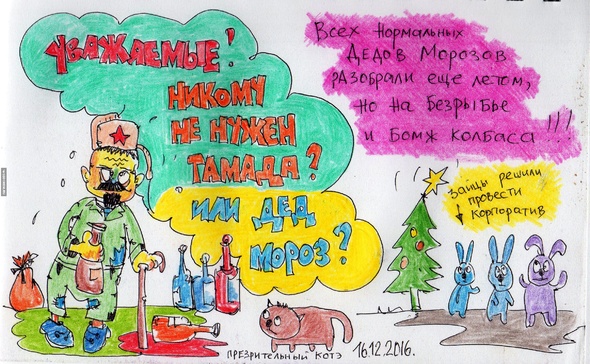 Уважаемые!
Никому
не нужен
тамада?
Или Дед
Мороз?
Всех нормальных
Дедов Морозов
разобрали еще летом,
но на безрыбье
и бомж колбаса!!!
Зайцы решили
провести
корпоратив
презрительный котэ
16.12.2016.